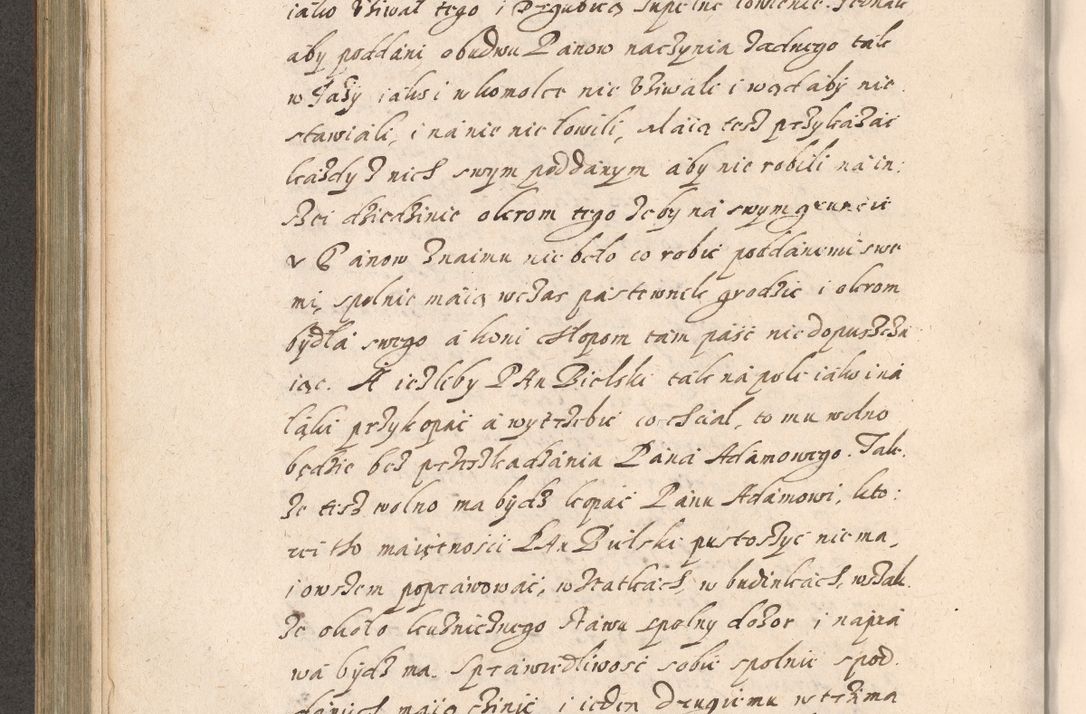 iako vżiwał tego i Przgubica supełne łowienie. Jednak
aby poddani obudwu Panow naczynia żadnego tak
w Jazy iako i w komolce nie vżiwali i wąd aby nie
stawiali, i na nie nie łowili, Maią tesz przykazać
każdy z nich swym poddanym aby nie robili na in:
szei dziedzinie okrom tego żeby na swym gruncie
v Panow znaimu nie beło co robic poddanemi swe
mi, spolnie maią wczas pastewnik grodzic i okrom
bydła swego a koni chłopom tam paść nie dopuszczu
iąc. A ieżleby PAn Bielski tak na pole iako i na
łąki przykopać a wytrzebic co chciał, to mu wolno
będzie bez przeszkadzania Pana Adamowego. Tak:
że tesz wolno ma bydz kopać Panu Adamowi, kto:
rei tho maiętności PAn Bielski pustoszyc nie ma,
i owszem poprawować, w statkach, w budinkach, wszak
że około kuźnicznego stawu spolny dozor i napra
wa bydz ma. Sprawiedliwosć sobie spolnie s pod
danych maią czinic i ieden drugiemu w trzima